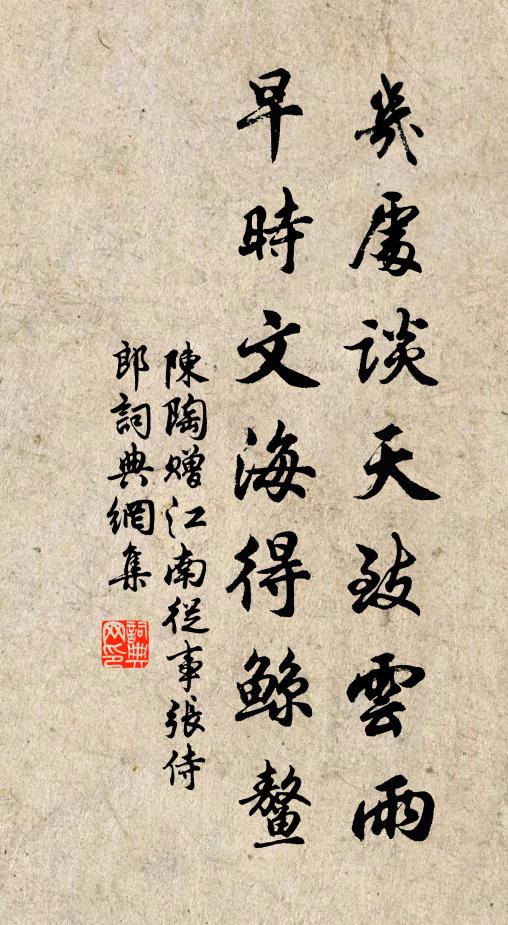 幾處談天致雲雨
早時文海得鯨鼇
陳陶贈江南從事張侍
郎詞典網集
詞典
网印